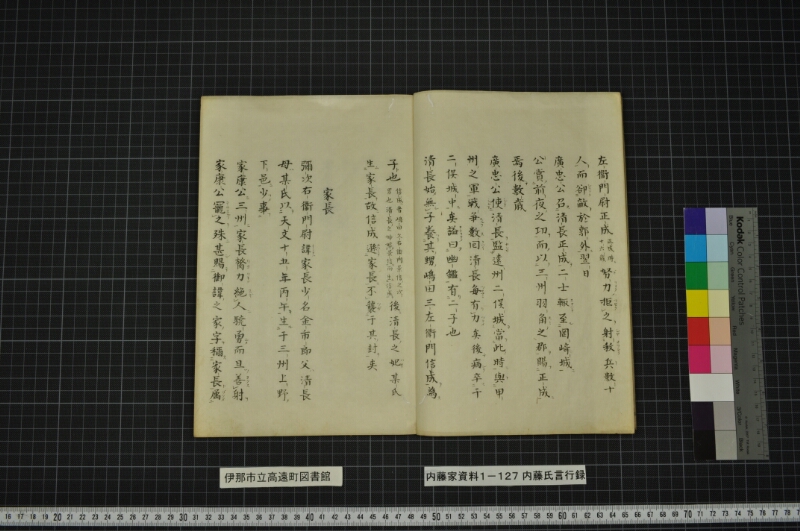 左衛門府正成 努力拒之射殺兵数十
人而卻敵於郭外翌日
廣忠公召清長正成二士輙至岡崎城
公賞前夜之功而以三州羽角之郡賜正成
焉後数歳
廣忠公使清長監遠州二俣城當此時與甲
州之軍戦争数回清長毎有力矣後病卒于
二俣城中矣謚曰幽鑑有二子也
清長始無子養其甥嶋田三左衛門信成為
子也 後清長之妃某氏
生家長故信成遜家長不襲于其封矣
家長
彌次右衛門府諱家長少名金市郎父清長
母某氏以天文十五年丙午生于三州上野
下邑少事
家康公三州家長膂力絶人驍勇而且善射
家康公寵之殊甚賜御諱之家字称家長属
伊那市立高遠町図書館
内藤家資料1－127 内藤氏言行録
Kodak Color Control Patches